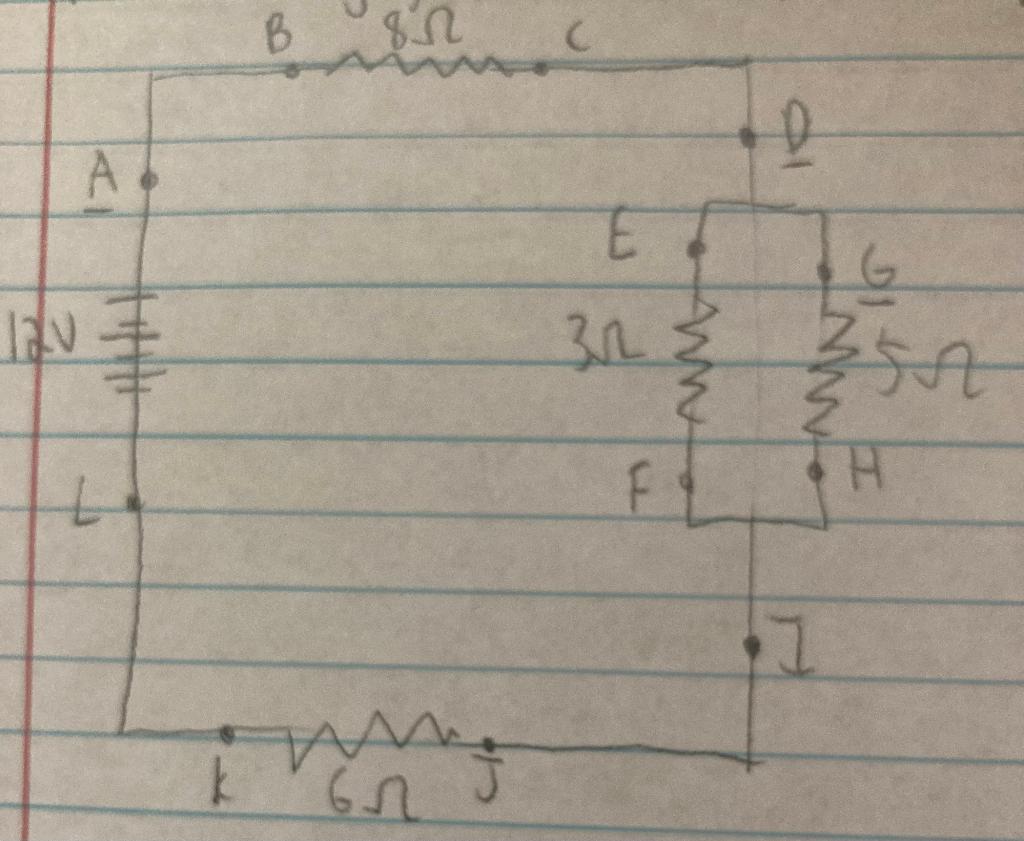 B 8Ω C
D
A
E
G
12V
3Ω 5Ω
F H
L
I
k 6Ω J